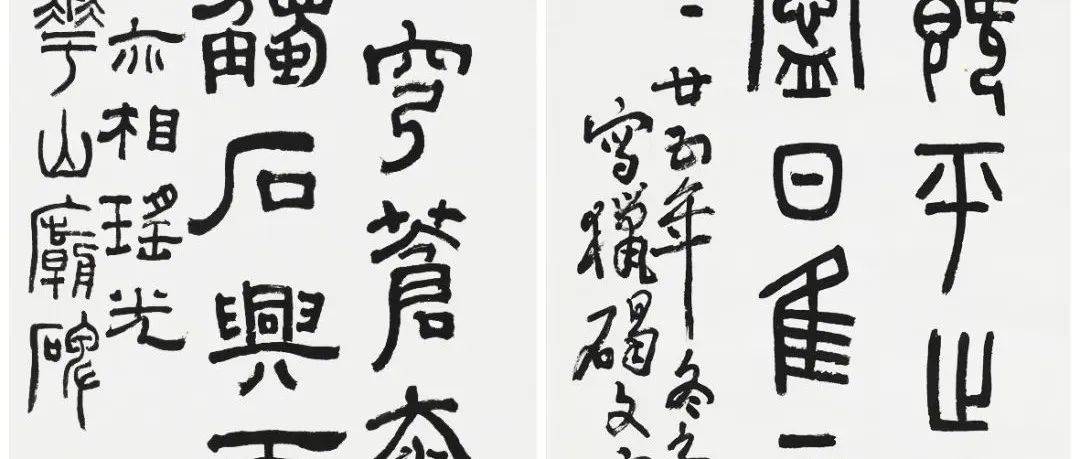 平止
日隹
廿五年冬
寫獵碣文
穹蒼
觸石興
亦相瑤光
華山廟碑